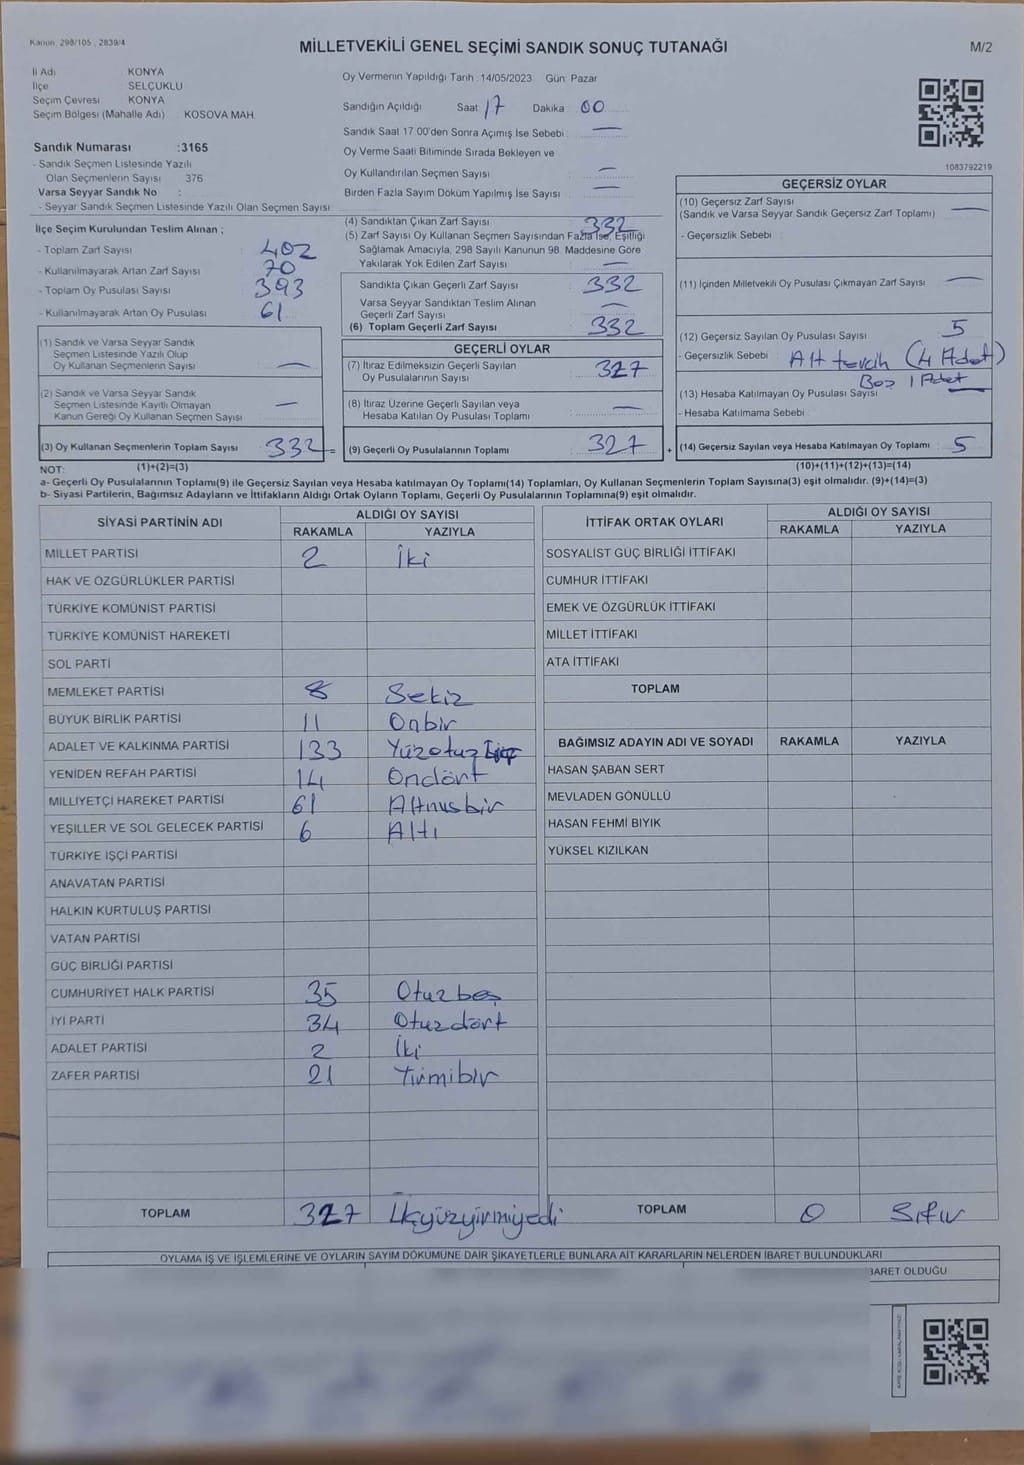 Kanun: 298/105 , 2839/4
MİLLETVEKİLİ GENEL SEÇİMİ SANDIK SONUÇ TUTANAĞI
M/2
İl Adı : KONYA
İlçe : SELÇUKLU
Seçim Çevresi : KONYA
Seçim Bölgesi (Mahalle Adı) : KOSOVA MAH.
Sandık Numarası :3165
- Sandık Seçmen Listesinde Yazılı
Olan Seçmenlerin Sayısı : 376
Varsa Seyyar Sandık No :
- Seyyar Sandık Seçmen Listesinde Yazılı Olan Seçmen Sayısı :
İlçe Seçim Kurulundan Teslim Alınan ;
- Toplam Zarf Sayısı : 402
- Kullanılmayarak Artan Zarf Sayısı : 70
- Toplam Oy Pusulası Sayısı : 393
- Kullanılmayarak Artan Oy Pusulası : 61
(1) Sandık ve Varsa Seyyar Sandık
Seçmen Listesinde Yazılı Olup
Oy Kullanan Seçmenlerin Sayısı : —
(2) Sandık ve Varsa Seyyar Sandık
Seçmen Listesinde Kayıtlı Olmayan
Kanun Gereği Oy Kullanan Seçmen Sayısı : —
(3) Oy Kullanan Seçmenlerin Toplam Sayısı : 332 =
(1)+(2)=(3)
Oy Vermenin Yapıldığı Tarih : 14/05/2023 Gün: Pazar
Sandığın Açıldığı Saat : 17 Dakika : 00
Sandık Saat 17.00'den Sonra Açımış İse Sebebi : —
Oy Verme Saati Bitiminde Sırada Bekleyen ve
Oy Kullandırılan Seçmen Sayısı : —
Birden Fazla Sayım Döküm Yapılmış İse Sayısı : —
(4) Sandıktan Çıkan Zarf Sayısı : 332
(5) Zarf Sayısı Oy Kullanan Seçmen Sayısından Fazla İse, Eşitliği
Sağlamak Amacıyla, 298 Sayılı Kanunun 98. Maddesine Göre
Yakılarak Yok Edilen Zarf Sayısı : —
Sandıkta Çıkan Geçerli Zarf Sayısı : 332
Varsa Seyyar Sandıktan Teslim Alınan
Geçerli Zarf Sayısı : —
(6) Toplam Geçerli Zarf Sayısı : 332
GEÇERLİ OYLAR
(7) İtiraz Edilmeksizin Geçerli Sayılan
Oy Pusulalarının Sayısı : 327
(8) İtiraz Üzerine Geçerli Sayılan veya
Hesaba Katılan Oy Pusulası Toplamı : —
(9) Geçerli Oy Pusulalarının Toplamı : 327 +
1083792219
GEÇERSİZ OYLAR
(10) Geçersiz Zarf Sayısı : —
(Sandık ve Varsa Seyyar Sandık Geçersiz Zarf Toplamı)
- Geçersizlik Sebebi :
(11) İçinden Milletvekili Oy Pusulası Çıkmayan Zarf Sayısı : —
(12) Geçersiz Sayılan Oy Pusulası Sayısı : 5
- Geçersizlik Sebebi : Alt tercih (4 Adet)
Boş 1 Adet
(13) Hesaba Katılmayan Oy Pusulası Sayısı : —
- Hesaba Katılmama Sebebi :
(14) Geçersiz Sayılan veya Hesaba Katılmayan Oy Toplamı : 5
(10)+(11)+(12)+(13)=(14)
NOT:
a- Geçerli Oy Pusulalarının Toplamı(9) ile Geçersiz Sayılan veya Hesaba katılmayan Oy Toplamı(14) Toplamları, Oy Kullanan Seçmenlerin Toplam Sayısına(3) eşit olmalıdır. (9)+(14)=(3)
b- Siyasi Partilerin, Bağımsız Adayların ve İttifakların Aldığı Ortak Oyların Toplamı, Geçerli Oy Pusulalarının Toplamına(9) eşit olmalıdır.
SİYASİ PARTİNİN ADI ALDIĞI OY SAYISI
RAKAMLA YAZIYLA
MİLLET PARTİSİ 2 İki
HAK VE ÖZGÜRLÜKLER PARTİSİ
TÜRKİYE KOMÜNİST PARTİSİ
TÜRKİYE KOMÜNİST HAREKETİ
SOL PARTİ
MEMLEKET PARTİSİ 8 Sekiz
BÜYÜK BİRLİK PARTİSİ 11 Onbir
ADALET VE KALKINMA PARTİSİ 133 Yüzotuz üç
YENİDEN REFAH PARTİSİ 14 Ondört
MİLLİYETÇİ HAREKET PARTİSİ 61 Altmışbir
YEŞİLLER VE SOL GELECEK PARTİSİ 6 Altı
TÜRKİYE İŞÇİ PARTİSİ
ANAVATAN PARTİSİ
HALKIN KURTULUŞ PARTİSİ
VATAN PARTİSİ
GÜÇ BİRLİĞİ PARTİSİ
CUMHURİYET HALK PARTİSİ 35 Otuz beş
İYİ PARTİ 34 Otuz dört
ADALET PARTİSİ 2 İki
ZAFER PARTİSİ 21 Yirmibir
TOPLAM 327 Üçyüzyirmiyedi
İTTİFAK ORTAK OYLARI ALDIĞI OY SAYISI
RAKAMLA YAZIYLA
SOSYALİST GÜÇ BİRLİĞİ İTTİFAKI
CUMHUR İTTİFAKI
EMEK VE ÖZGÜRLÜK İTTİFAKI
MİLLET İTTİFAKI
ATA İTTİFAKI
TOPLAM
BAĞIMSIZ ADAYIN ADI VE SOYADI RAKAMLA YAZIYLA
HASAN ŞABAN SERT
MEVLADEN GÖNÜLLÜ
HASAN FEHMİ BIYIK
YÜKSEL KIZILKAN
TOPLAM 0 Sıfır
OYLAMA İŞ VE İŞLEMLERİNE VE OYLARIN SAYIM DÖKÜMÜNE DAİR ŞİKAYETLERLE BUNLARA AİT KARARLARIN NELERDEN İBARET BULUNDUKLARI
BARET OLDUĞU